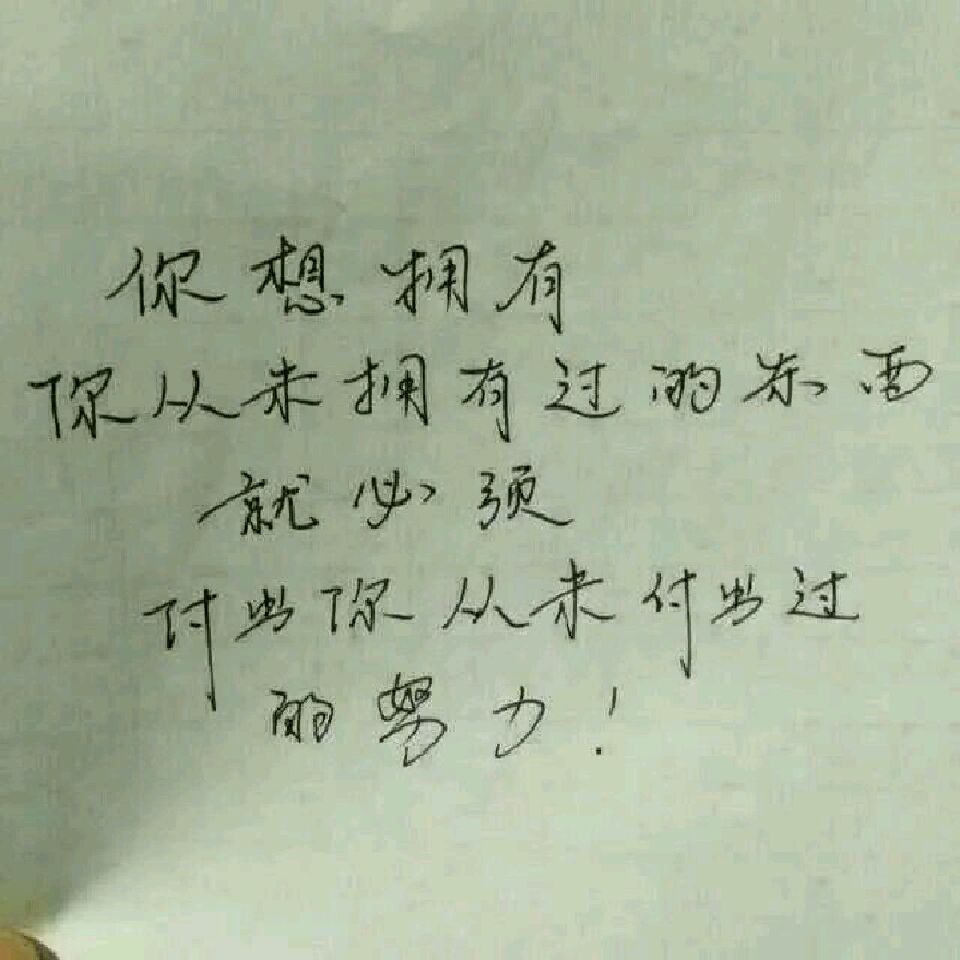 你想拥有
你从未拥有过的东西
就必须
付出你从未付出过
的努力!